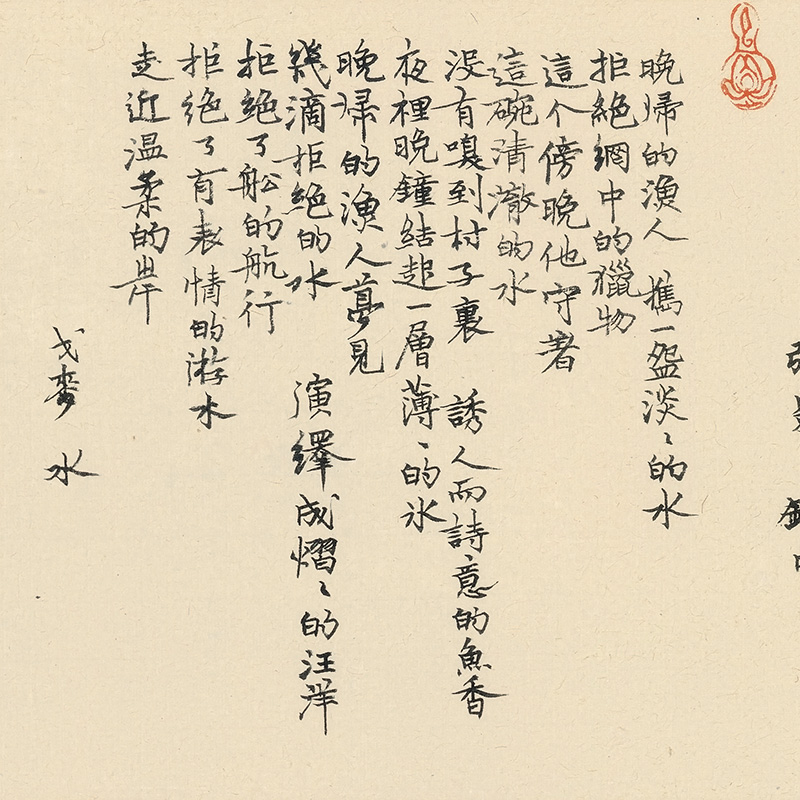 晚歸的漁人 攜一盌淡淡的水
拒絕網中的獵物
這个傍晚他守著
這碗清澈的水
没有嗅到村子裏 誘人而詩意的魚香
夜裡晚鐘結起一層薄薄的氷
晚歸的漁人夢見
幾滴拒絕的水 演繹成熠熠的汪洋
拒絕了舩的航行
拒絕了有表情的游水
走近温柔的岸
戈麥 水